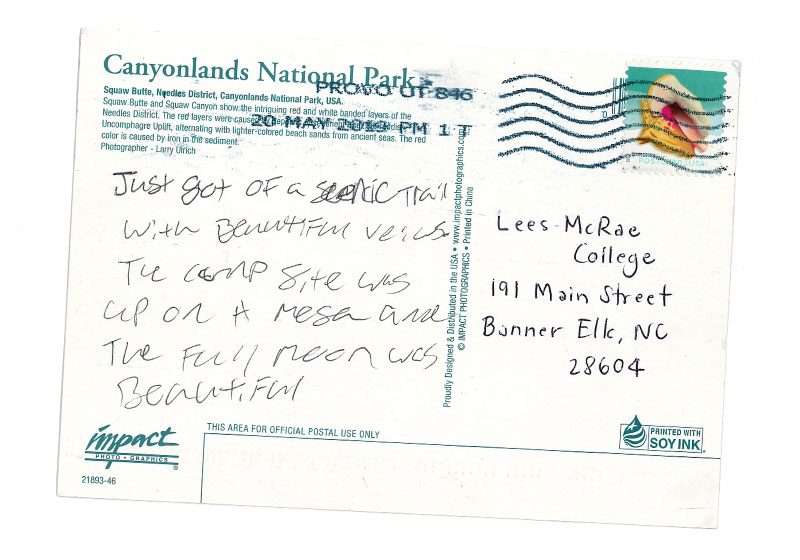 Canyonlands National Park
Squaw Butte, Needles District, Canyonlands National Park, USA.
Squaw Butte and Squaw Canyon show the intriguing red and white banded layers of the
Needles District. The red layers were
Uncomphagre Uplift, alternating with lighter-colored beach sands from ancient seas. The red
color is caused by iron in the sediment.
Photographer - Larry Ulrich
PROVO UT 846
20 MAY 2019 PM 1 T
Just got of a scenic Trail
with Beautiful veiws
The camp site was
up on A mesa and
The Full moon was
Beautiful
Proudly Designed & Distributed in the USA • www.impactphotographics.com
© IMPACT PHOTOGRAPHICS • Printed in China
Lees-McRae
College
191 Main Street
Banner Elk, NC
28604
THIS AREA FOR OFFICIAL POSTAL USE ONLY
impact
PHOTO • GRAPHICS
®
21893-46
PRINTED WITH
SOY INK